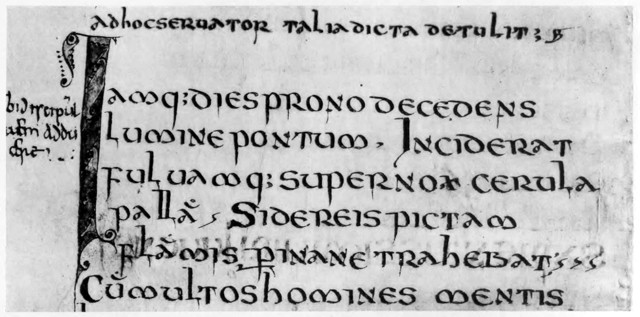 adhocseruator taliadicta detulit;
Iamq; diesprono decedens
Lumine pontum. Inciderat
fuluamq; supernox cerula
pallā, Sidereis pictam
flāmis. pinane trahebat;,,,
Cūmultoshomines mentis